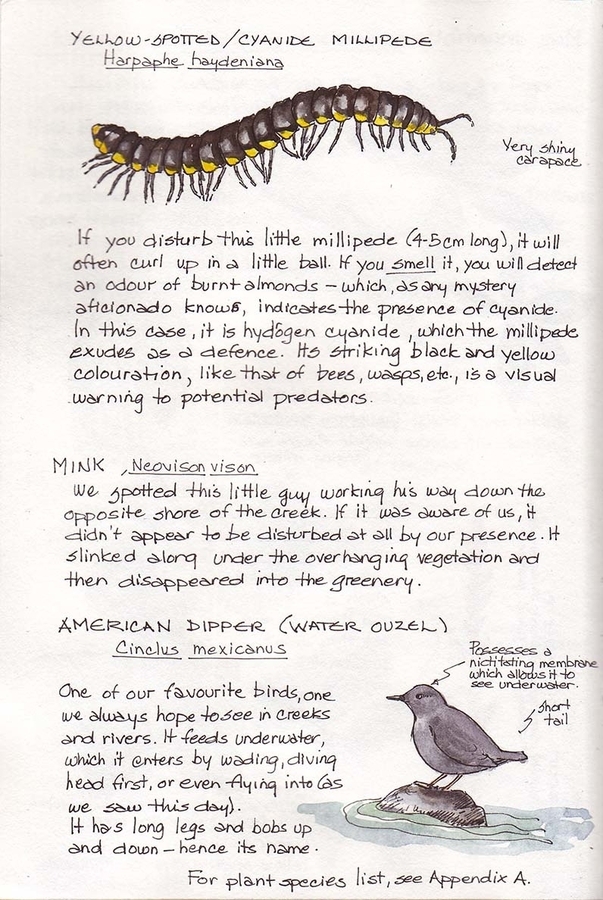 YELLOW-SPOTTED/CYANIDE MILLIPEDE
Harpaphe haydeniana
Very shiny
carapace
If you disturb this little millipede (4-5cm long), it will
often curl up in a little ball. If you smell it, you will detect
an odour of burnt almonds - which, as any mystery
aficionado knows, indicates the presence of cyanide.
In this case, it is hydogen cyanide, which the millipede
exudes as a defence. Its striking black and yellow
colouration, like that of bees, wasps, etc., is a visual
warning to potential predators.
MINK, Neovison vison
We spotted this little guy working his way down the
opposite shore of the creek. If it was aware of us, it
didn't appear to be disturbed at all by our presence. It
slinked along under the overhanging vegetation and
then disappeared into the greenery.
AMERICAN DIPPER (WATER OUZEL)
Cinclus mexicanus
Possesses a
nictitating membrane
which allows it to
see underwater.
short
tail
One of our favourite birds, one
we always hope to see in creeks
and rivers. It feeds underwater,
which it enters by wading, diving
head first, or even flying into (as
we saw this day).
It has long legs and bobs up
and down - hence its name.
For plant species list, see Appendix A.